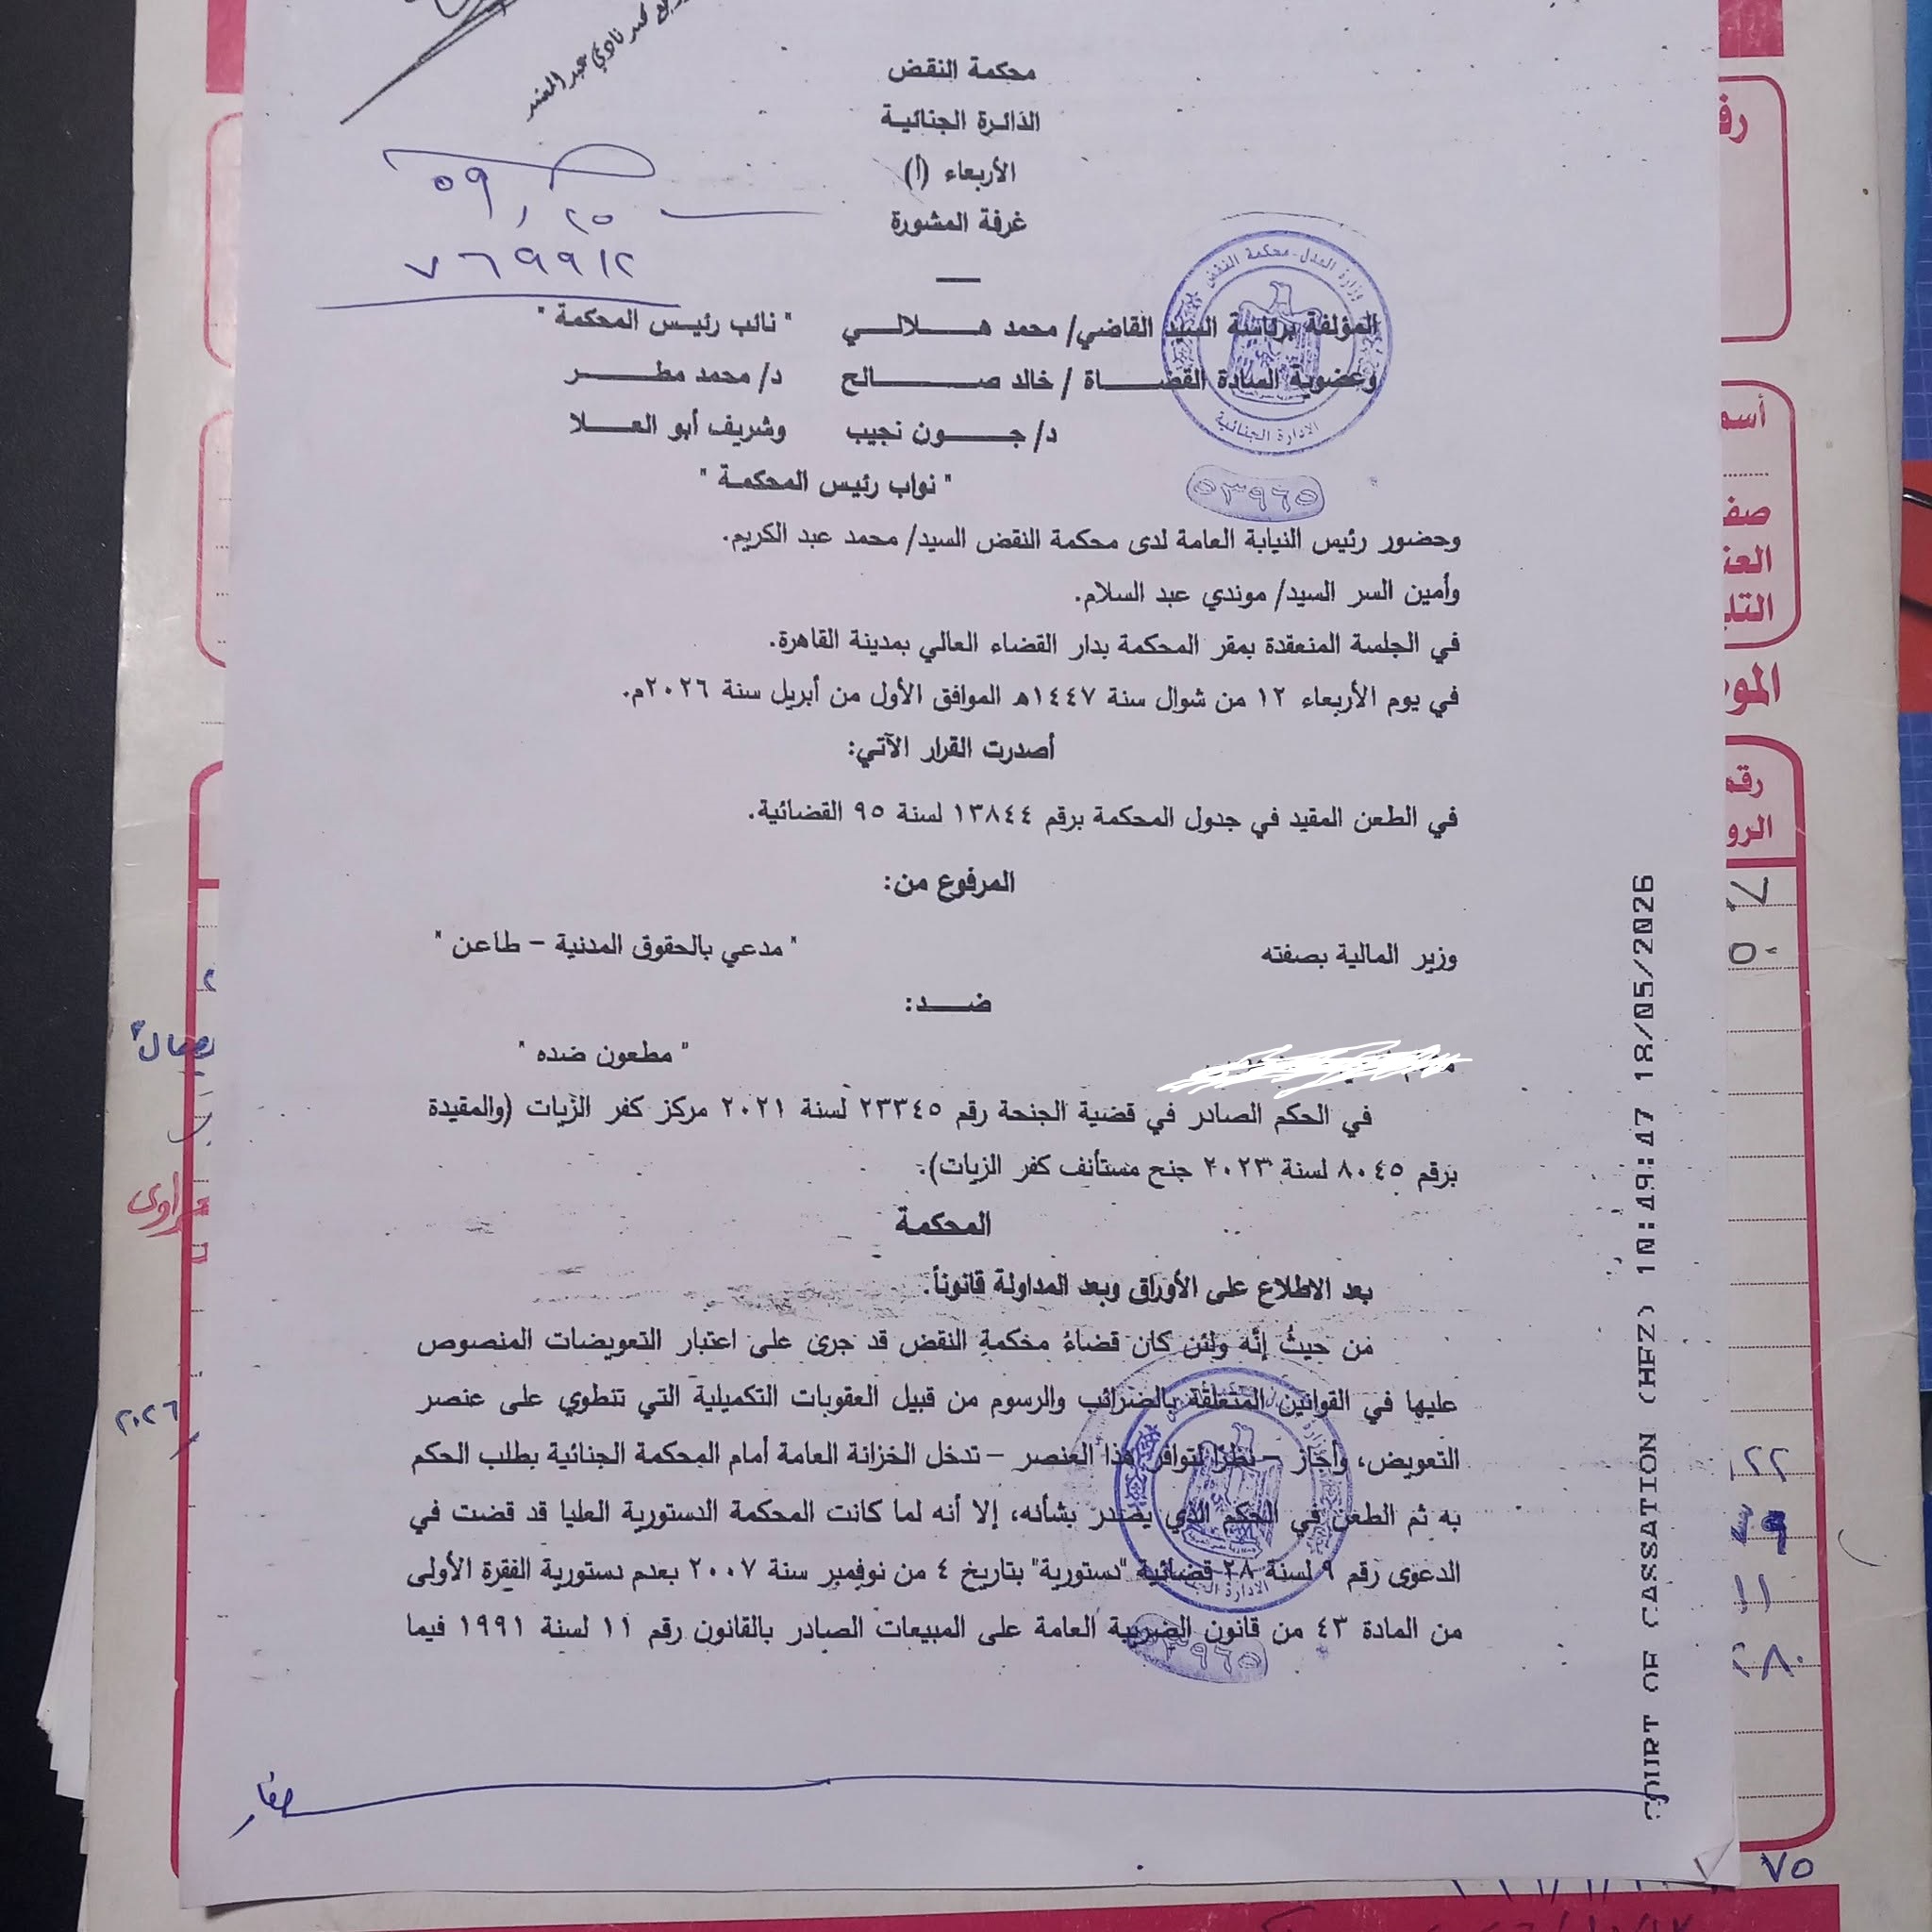 محكمة النقض
الدائرة الجنائية
الأربعاء (أ)
غرفة المشورة
٧٦٩٩١٢
وزارة العدل - محكمة النقض
الادارة الجنائية
المؤلفة برئاسة السيد القاضي/ محمد هـلالي " نائب رئيس المحكمة "
وعضوية السادة القضاة / خالد صالح د/ محمد مطر
د/ جون نجيب وشريف أبو العلا
" نواب رئيس المحكمة "
٥٣٩٦٥
وحضور رئيس النيابة العامة لدى محكمة النقض السيد/ محمد عبد الكريم.
وأمين السر السيد/ موندي عبد السلام.
في الجلسة المنعقدة بمقر المحكمة بدار القضاء العالي بمدينة القاهرة.
في يوم الأربعاء ١٢ من شوال سنة ١٤٤٧هـ الموافق الأول من أبريل سنة ٢٠٢٦م.
أصدرت القرار الآتي:
في الطعن المقيد في جدول المحكمة برقم ١٣٨٤٤ لسنة ٩٥ القضائية.
المرفوع من:
وزير المالية بصفته " مدعي بالحقوق المدنية – طاعن "
ضد:
" مطعون ضده "
في الحكم الصادر في قضية الجنحة رقم ٢٣٣٤٥ لسنة ٢٠٢١ مركز كفر الزيات (والمقيدة
برقم ٨٠٤٥ لسنة ٢٠٢٣ جنح مستأنف كفر الزيات).
المحكمة
بعد الاطلاع على الأوراق وبعد المداولة قانوناً.
من حيثُ إنَّه ولئن كان قضاءُ محكمةِ النقض قد جرى على اعتبار التعويضات المنصوص
عليها في القوانين المتعلقة بالضرائب والرسوم من قبيل العقوبات التكميلية التي تنطوي على عنصر
التعويض، وأجاز – نظرًا لتوافر هذا العنصر – تدخل الخزانة العامة أمام المحكمة الجنائية بطلب الحكم
به ثم الطعن في الحكم الذي يصدر بشأنه، إلا أنه لما كانت المحكمة الدستورية العليا قد قضت في
الدعوى رقم ٩ لسنة ٢٨ قضائية "دستورية" بتاريخ ٤ من نوفمبر سنة ٢٠٠٧ بعدم دستورية الفقرة الأولى
من المادة ٤٣ من قانون الضريبة العامة على المبيعات الصادر بالقانون رقم ١١ لسنة ١٩٩١ فيما
COURT OF CASSATION (HFZ) 10:49:47 18/05/2026
٧٥